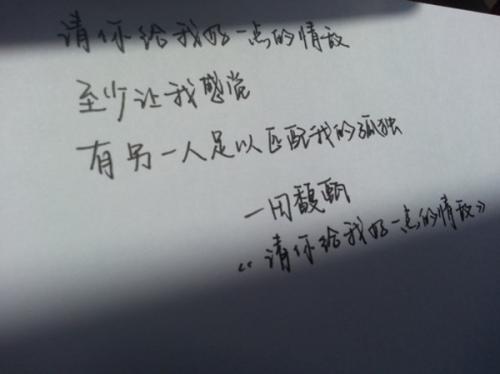 请你给我好一点的情敌
至少让我感觉
有另一人足以匹配我的孤独
—田馥甄
《请你给我好一点的情敌》